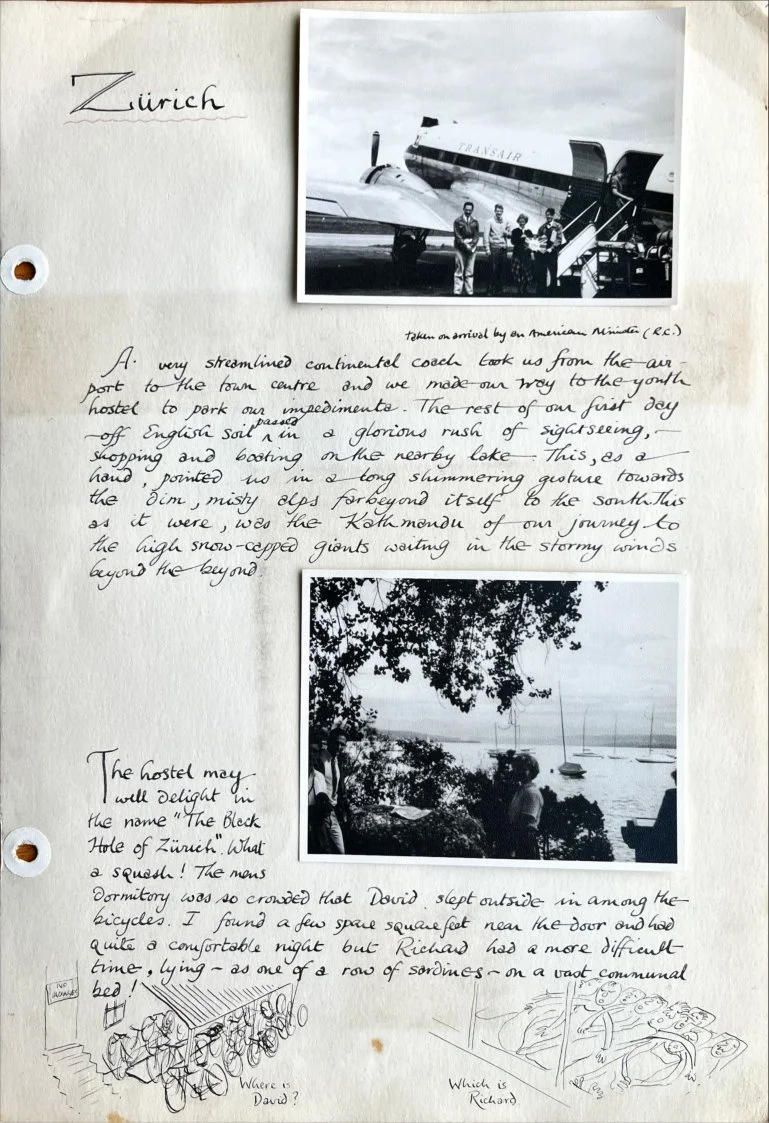 Zürich
TRANSAIR
taken on arrival by an American Minister (R.C.)
A very streamlined continental coach took us from the air-
port to the town centre and we made our way to the youth
hostel to park our impedimenta. The rest of our first day
off English soil passed in a glorious rush of sightseeing,
shopping and boating on the nearby lake. This, as a
hand, pointed us in a long shimmering gesture towards
the dim, misty alps far beyond itself to the south. This
as it were, was the Kathmandu of our journey to
the high snow-capped giants waiting in the stormy winds
beyond the beyond.
The hostel may
well delight in
the name "The Black
Hole of Zürich". What
a squash! The mens
Dormitory was so crowded that David slept outside in among the
bicycles. I found a few spare square feet near the door and had
quite a comfortable night but Richard had a more difficult
time, lying - as one of a row of sardines - on a vast communal
bed!
NO
Where is
David?
Which is
Richard